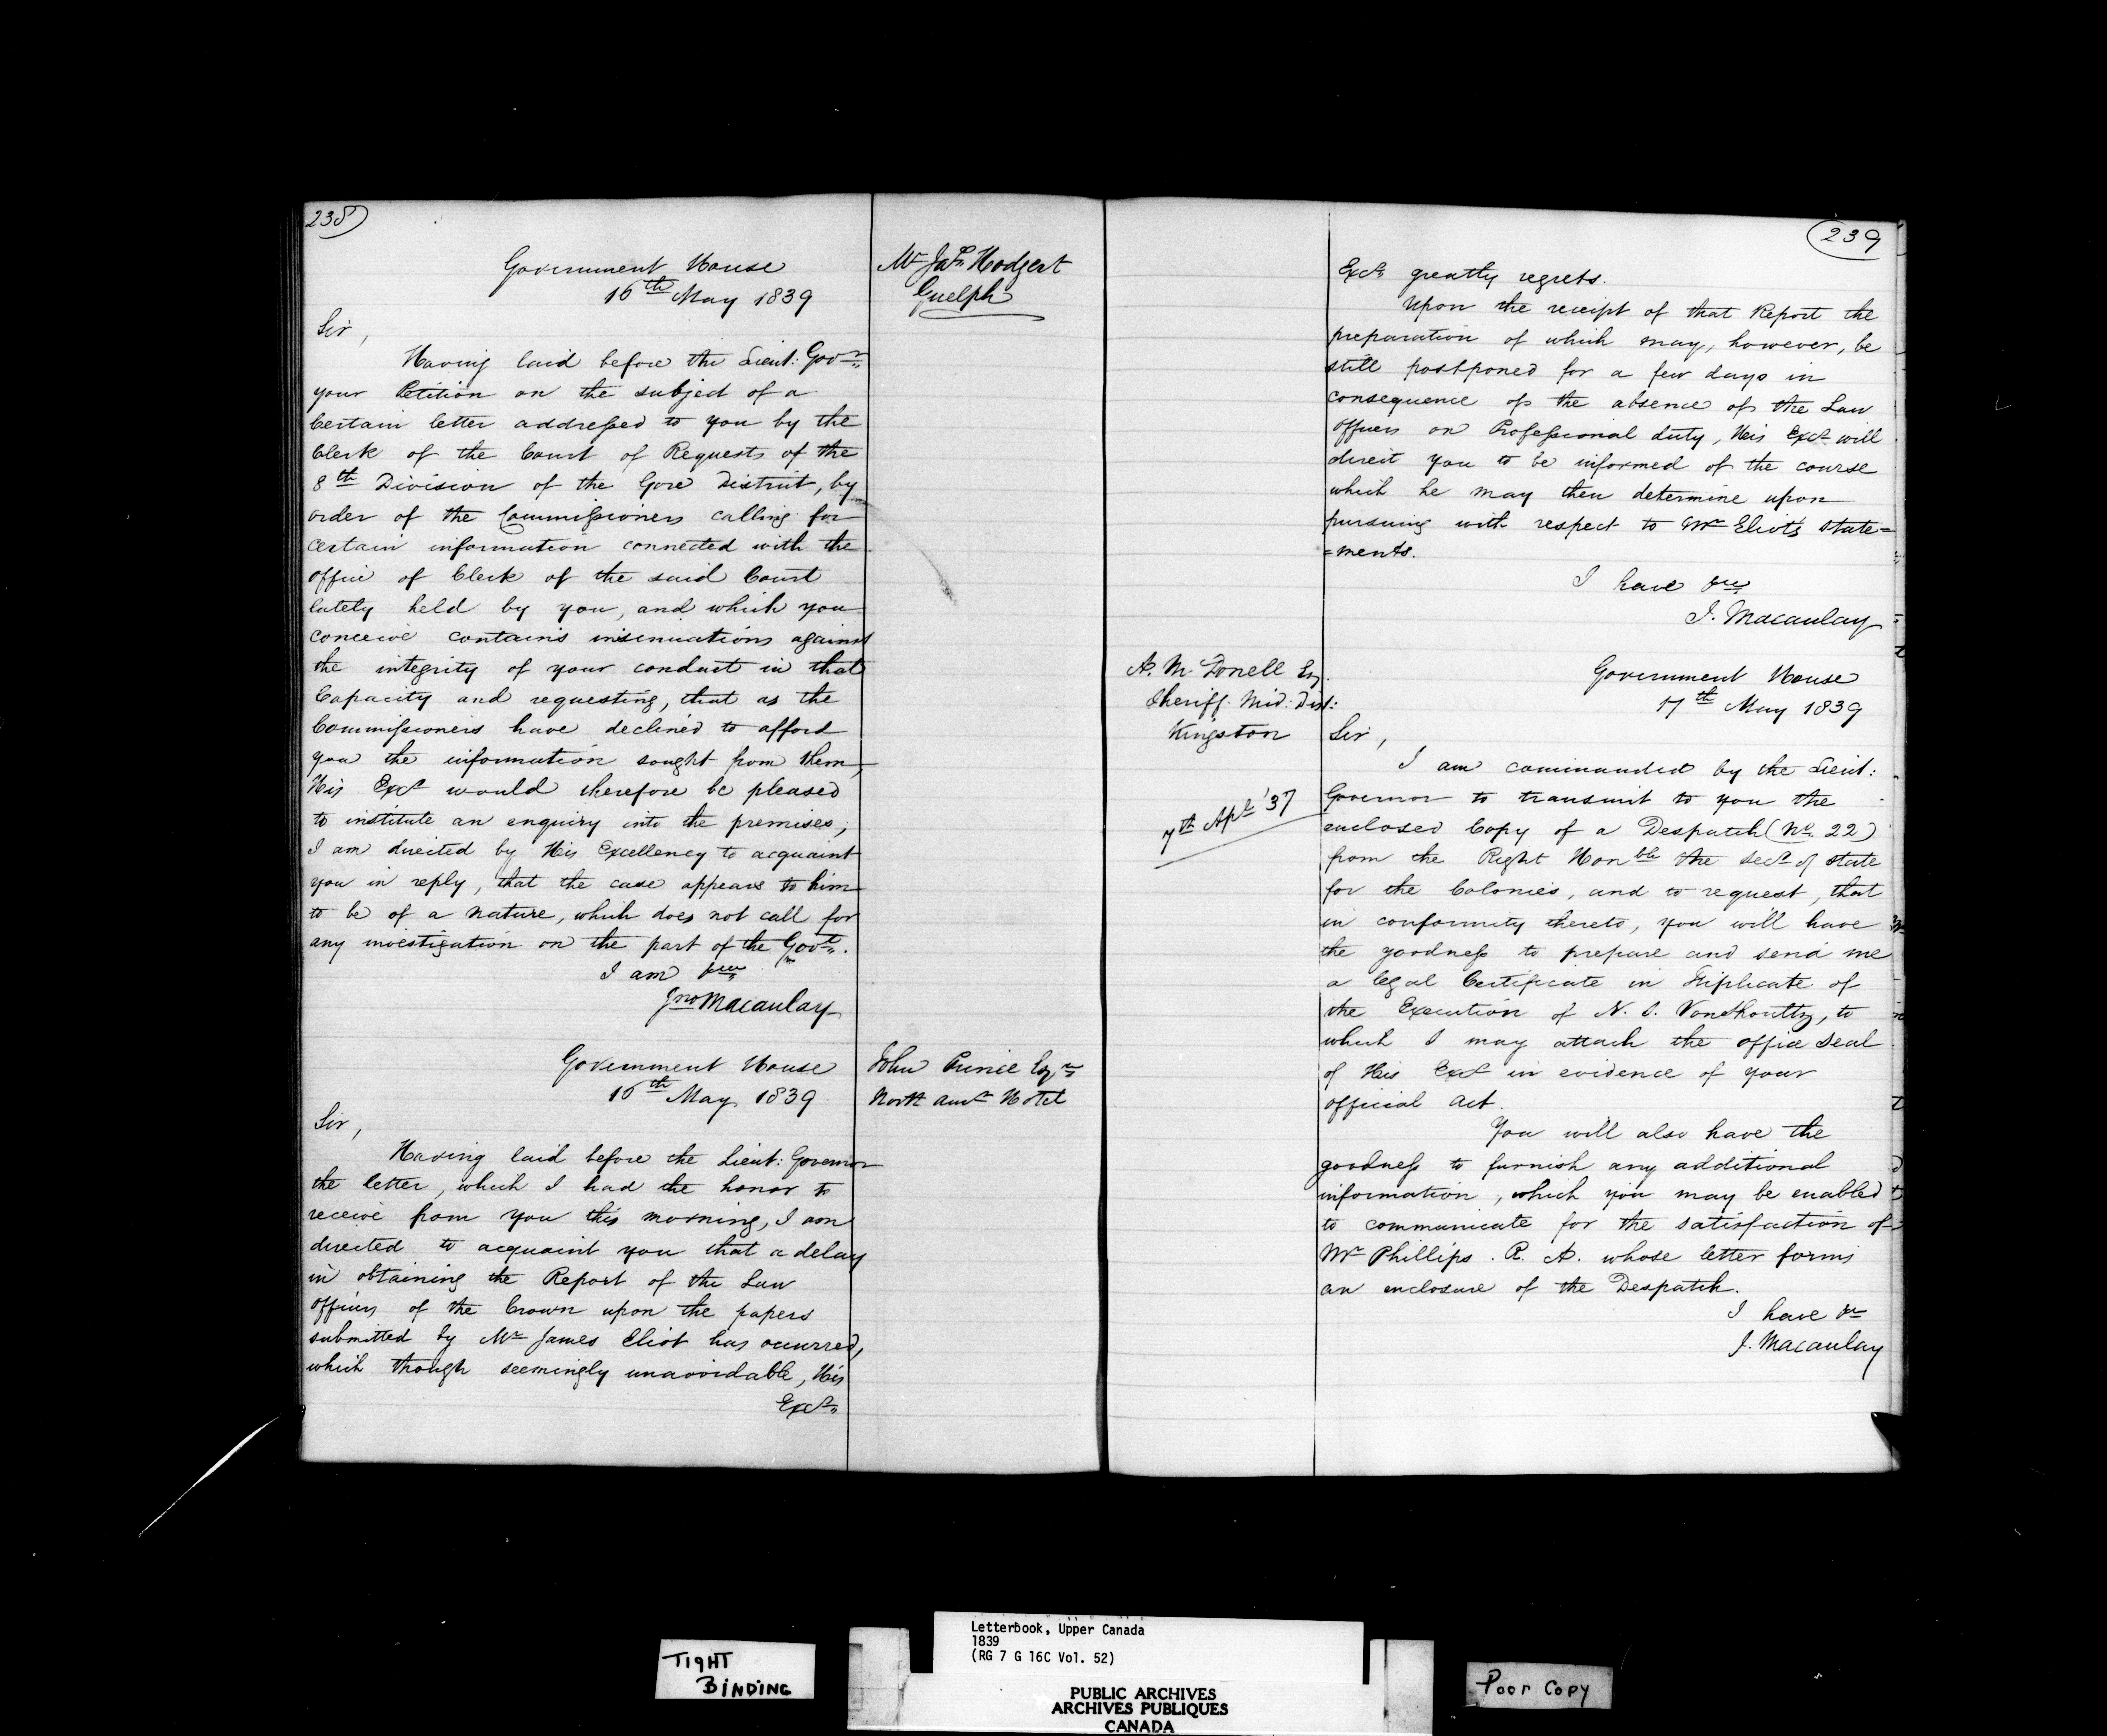 238
Mr Jas. Hodgert
Guelph
Government House
16th May 1839
Sir,
Having laid before the Lieut: Govr
your Petition on the subject of a
Certain letter addressed to you by the
Clerk of the Court of Requests of the
8th Division of the Gore District, by
order of the Commissioners calling for
certain information connected with the
office of Clerk of the said Court
lately held by you, and which you
conceive contains insinuations against
the integrity of your conduct in that
Capacity and requesting, that as the
Commissioners have declined to afford
you the information sought from them,
His Excy would therefore be pleased
to institute an enquiry into the premises,
I am directed by His Excellency to acquaint
you in reply, that the case appears to him
to be of a nature, which does not call for
any investigation on the part of the Govt.
I am &c
Jno Macaulay
John Prince Esqr
North Amn Hotel
Government House
16th May 1839
Sir,
Having laid before the Lieut: Governor
the letter, which I had the honor to
receive from you this morning, I am
directed to acquaint you that a delay
in obtaining the Report of the Law
officers of the Crown upon the papers
submitted by Mr James Eliot has occurred,
which though seemingly unavoidable, His
Excy
239
Excy greatly regrets.
Upon the receipt of that Report the
preparation of which may, however, be
still postponed for a few days in
consequence of the absence of the Law
officers on Professional duty, His Excy will
direct you to be informed of the course
which he may then determine upon
pursuing with respect to Mr Eliots state=
=ments.
I have &c
J. Macaulay
A. McDonell Esq.
Sheriff Mid: Dist:
Kingston
Government House
17th May 1839
Sir,
I am commanded by the Lieut:
Governor to transmit to you the
7th Apl '37
enclosed Copy of a Despatch (No. 22)
from the Right Honble the Secy of State
for the Colonies, and to request, that
in conformity thereto, you will have
the goodness to prepare and send me
a legal Certificate in Triplicate of
the Execution of N. S. Vonshoultz, to
which I may attach the office Seal
of His Excy in evidence of your
official act.
You will also have the
goodness to furnish any additional
information, which you may be enabled
to communicate for the satisfaction of
Mr Phillips. R. A. whose letter forms
an enclosure of the Despatch.
I have &c
J. Macaulay
TIGHT
BINDING
Letterbook, Upper Canada
1839
(RG 7 G 16C Vol. 52)
PUBLIC ARCHIVES
ARCHIVES PUBLIQUES
CANADA
Poor Copy